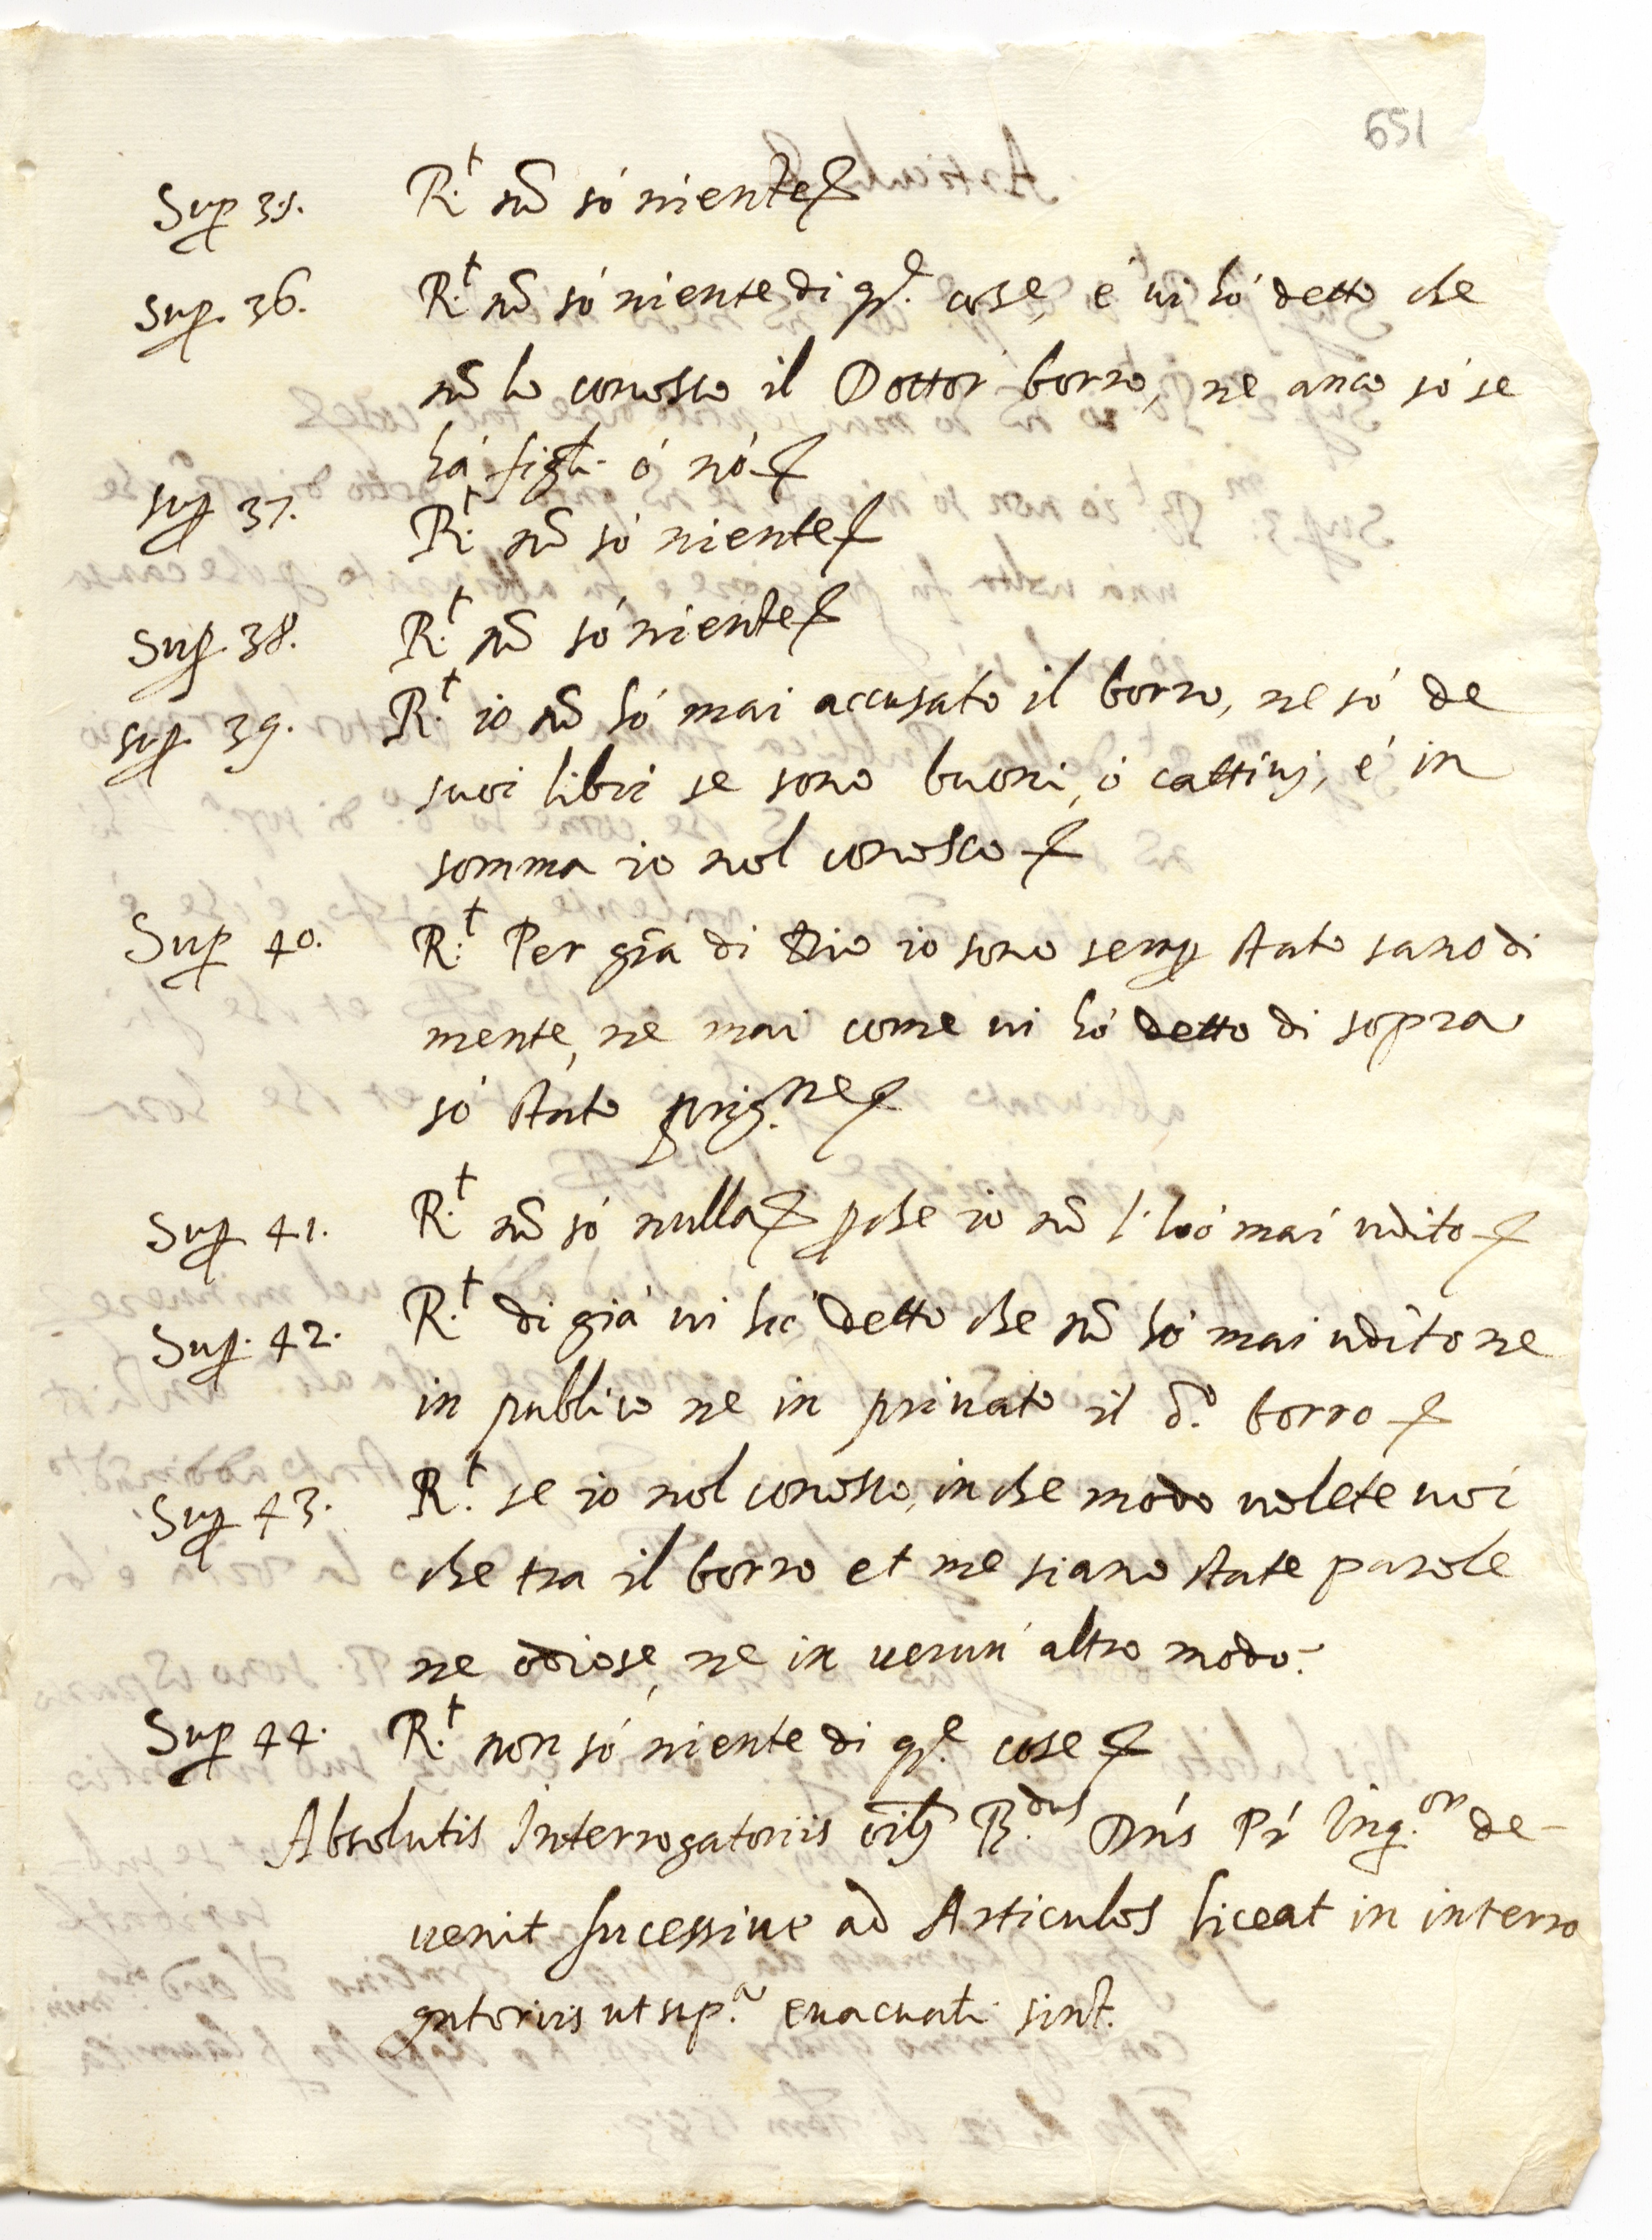 651
Sup 35. R.t nõ só niente
Sup. 36. R.t nõ só niente di q.e cose, e ui hó detto che
nõ lo conosco il Dottor borro, ne anco só se
há figli ó nó
sup 37. R.t nõ só niente
Sup. 38. R.t nõ só niente
sup. 39. R.t io nõ hó mai accusato il borro, ne só de
suoi libri se sono buoni, ó cattiuj, é in
somma io nol conosco
Sup 40. R.t Per grã di Dio io sono semp stato sano di
mente, ne mai come ui hó detto di sopra
só stato prig.ne
Sup 41. R.t nõ só nulla pche io nõ l'hó mai udito
Sup. 42. R.t di giá ui hó detto che nõ hó mai udito ne
in publico ne in priuato il d.o borro
Sup 43. R.t se io nol conosco, in che modo uolete uoi
che tra il borro et me siano state parole
ne odiose, ne in uerun' altro modo.
Sup 44. R.t non só niente di q.e cose
Absolutis Interrogatoriis oĩb R.dus Dñs Pr Inq.or de-
uenit sucessiue ad Articulos liceat in interro
gatoriis ut sup.a euacuati sint.